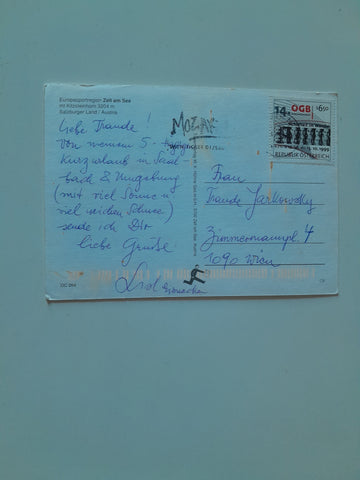 Europasportregion Zell am See
mit Kitzsteinhorn 3203 m
Salzburger Land / Austria
Liebe Traude!
Von meinem 5-tägigen
Kurzurlaub in Saal-
bach & Umgebung
(mit viel Sonne u
viel weichem Schnee)
sende ich Dir
liebe Grüße
MOZART
14.
ÖGB
6,50
REPUBLIK ÖSTERREICH
Frau
Traude Jarkowsky
Zimmermannpl. 4
1090 Wien